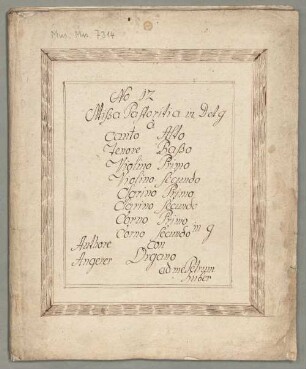 Mus. Mss 7314
No 12
Mißa Pastoritia in D et g
a
Canto Alto
Tenore Baßo
Violino Primo
Violino Secundo
Clarino Primo
Clarino Secundo
Corno Primo
Corno Secundo in g
Authore con
Angerer Organo
ad me Petrum
Huber